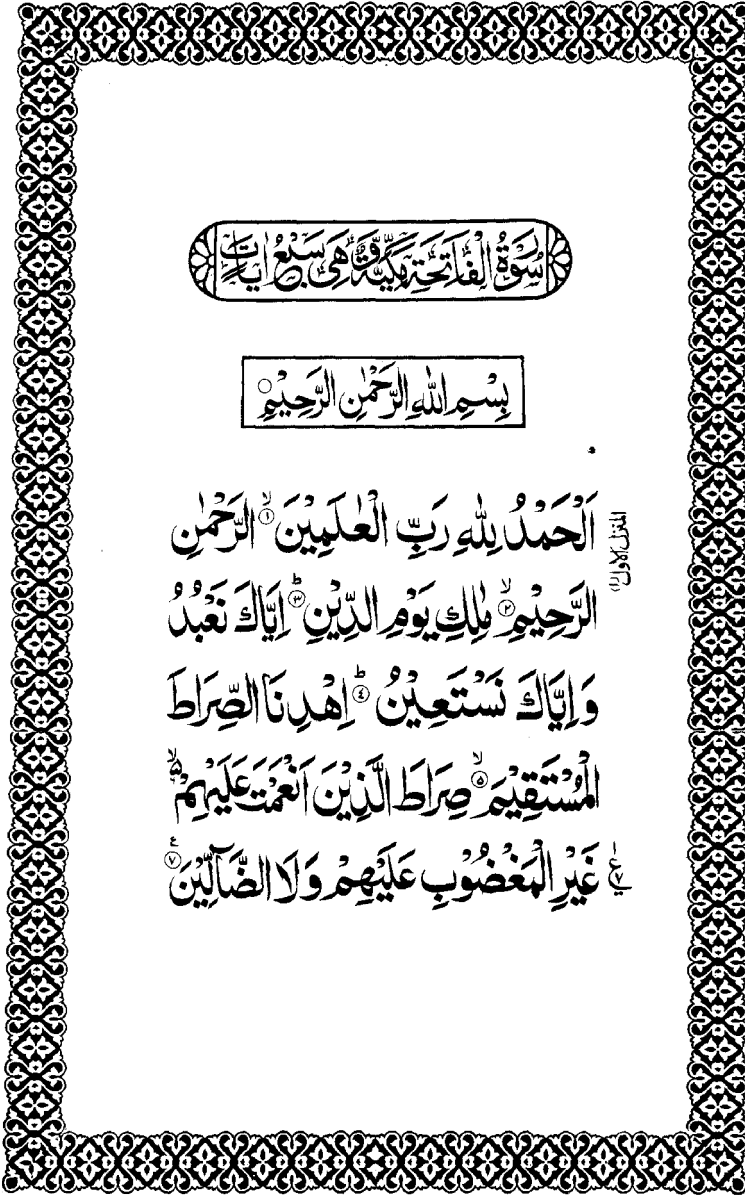 سُوْرَةُ الْفَاتِحَةِ مَكِّيَّةٌ وَّهِىَ سَبْعُ اٰيَاتٍ
بِسْمِ اللّٰهِ الرَّحْمٰنِ الرَّحِيْمِ ○
اَلْحَمْدُ لِلّٰهِ رَبِّ الْعٰلَمِيْنَ ۙ﴿١﴾ الرَّحْمٰنِ
المنزل الاول (١)
الرَّحِيْمِ ۙ﴿٢﴾ مٰلِكِ يَوْمِ الدِّيْنِ ؕ﴿٣﴾ اِيَّاكَ نَعْبُدُ
وَاِيَّاكَ نَسْتَعِيْنُ ؕ﴿٤﴾ اِهْدِنَا الصِّرَاطَ
الْمُسْتَقِيْمَ ۙ﴿۵﴾ صِرَاطَ الَّذِيْنَ اَنْعَمْتَ عَلَيْهِمْ ۙ۬
غَيْرِ الْمَغْضُوْبِ عَلَيْهِمْ وَلَا الضَّآلِّيْنَ ﴿٧﴾